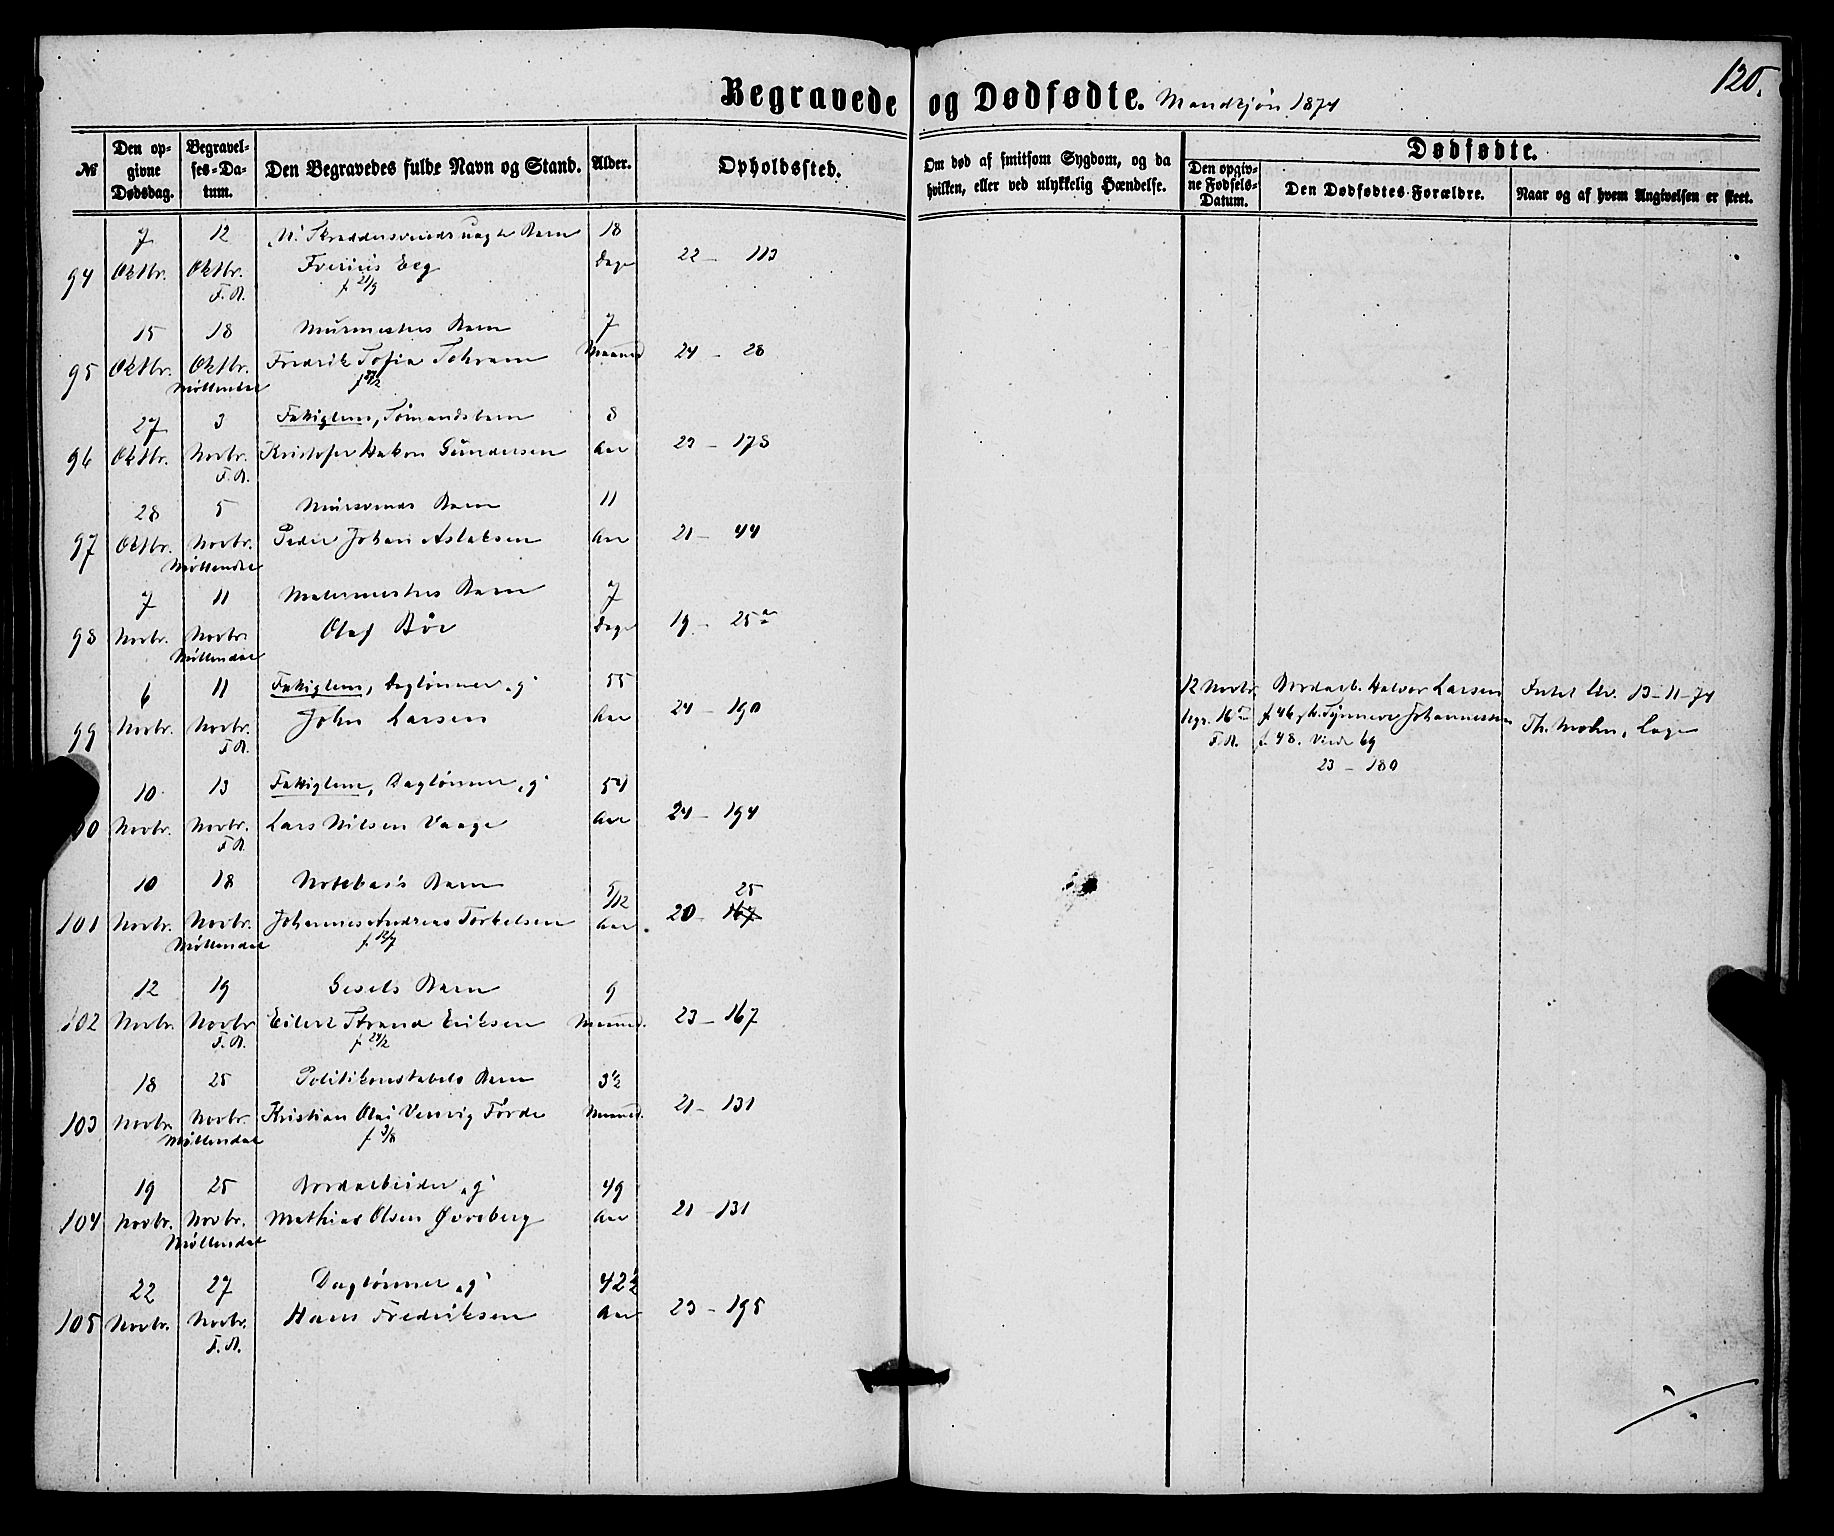 120.
Begravede og Dødfødte. Mandkjøn 1874
№ Den opgivne Dødsdag. Begravelses-Datum. Den Begravedes fulde Navn og Stand. Alder. Opholdssted. Om død af smitsom Sygdom, og da hvilken, eller ved ulykkelig Hændelse. Dødfødte.
Den opgivne Fødsels-Datum. Den Dødfødtes Forældre. Naar og af hvem Angivelsen er skeet.
7 12 Barn 18
94 Oktbr. Oktbr. Eeg Dage 22 – 113
F.A. f. 21/9
15 18 Murmesters Barn 7
95 Oktbr. Oktbr. Fredrik Tofia Maaned 24 – 28
Møllendal
27 3 Fattiglem, Sømandsbarn 8
96 Oktbr. Novbr. Kristofer Hakon Gundersen Aar 23 – 178
F.A.
28 5 Mursvends Barn 11
97 Oktbr. Novbr. Peder Johan Aslaksen Aar 21 – 44
Møllendal
7 11 Malermesters Barn 7
98 Novbr. Novbr. Olaf Bøe Dage 19 – 25 a
Møllendal
6 11 Fattiglem, Daglønner „g“ 55
99 Novbr. Novbr. John Larsen Aar 24 – 190
F.A.
12 Novbr. Bordarb. Halvor Larsen 13–11–74
begr. 16 f. 46 Johannessen Th. Mohn, Læge
F.A. f. 48. Viede 69
23 – 180
10 13 Fattiglem, Daglønner „g“ 54
00 Novbr. Novbr. Lars Nilsen Vaage Aar 24 – 194
F.A.
10 18 Notebas's Barn 5/12 25
101 Novbr. Novbr. Johannes Andreas Torkelsen Aar 20 – 167
Møllendal f. 12/7
12 19 Gesels Barn 9
102 Novbr. Novbr. Eilert Strand Eriksen Maaned. 23 – 167
F.A. f. 24/2
18 25 Politikonstabels Barn 3½
103 Novbr. Novbr. Kristian Olai Førde Maaned. 21 – 131
Møllendal f. 3/8
19 25 Bordarbeider „g“ 49
104 Novbr. Novbr. Mathias Olsen Aar 21 – 131
Møllendal
22 27 Daglønner „g“ 42½
105 Novbr. Novbr. Hans Fredriksen Aar 23 – 195
F.A.